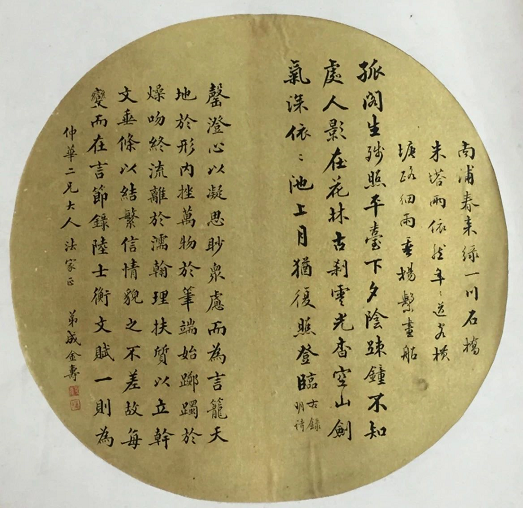 南浦春來綠一川石橋
朱塔兩依然年〻送客橫
塘路細雨垂楊繫畫船
孤閣生殘照平臺下夕陰疎鐘不知
處人影在花林古剎雲光杳空山劍
氣深依〻池上月猶復照登臨
右錄
明詩
罄澄心以凝思眇衆慮而為言籠天
地於形內挫萬物於筆端始躑躅於
燥吻終流離於濡翰理扶質以立幹
文垂條以結繁信情貌之不差故每
變而在言節錄陸士衡文賦一則為
仲華二兄大人法家正
弟成金壽